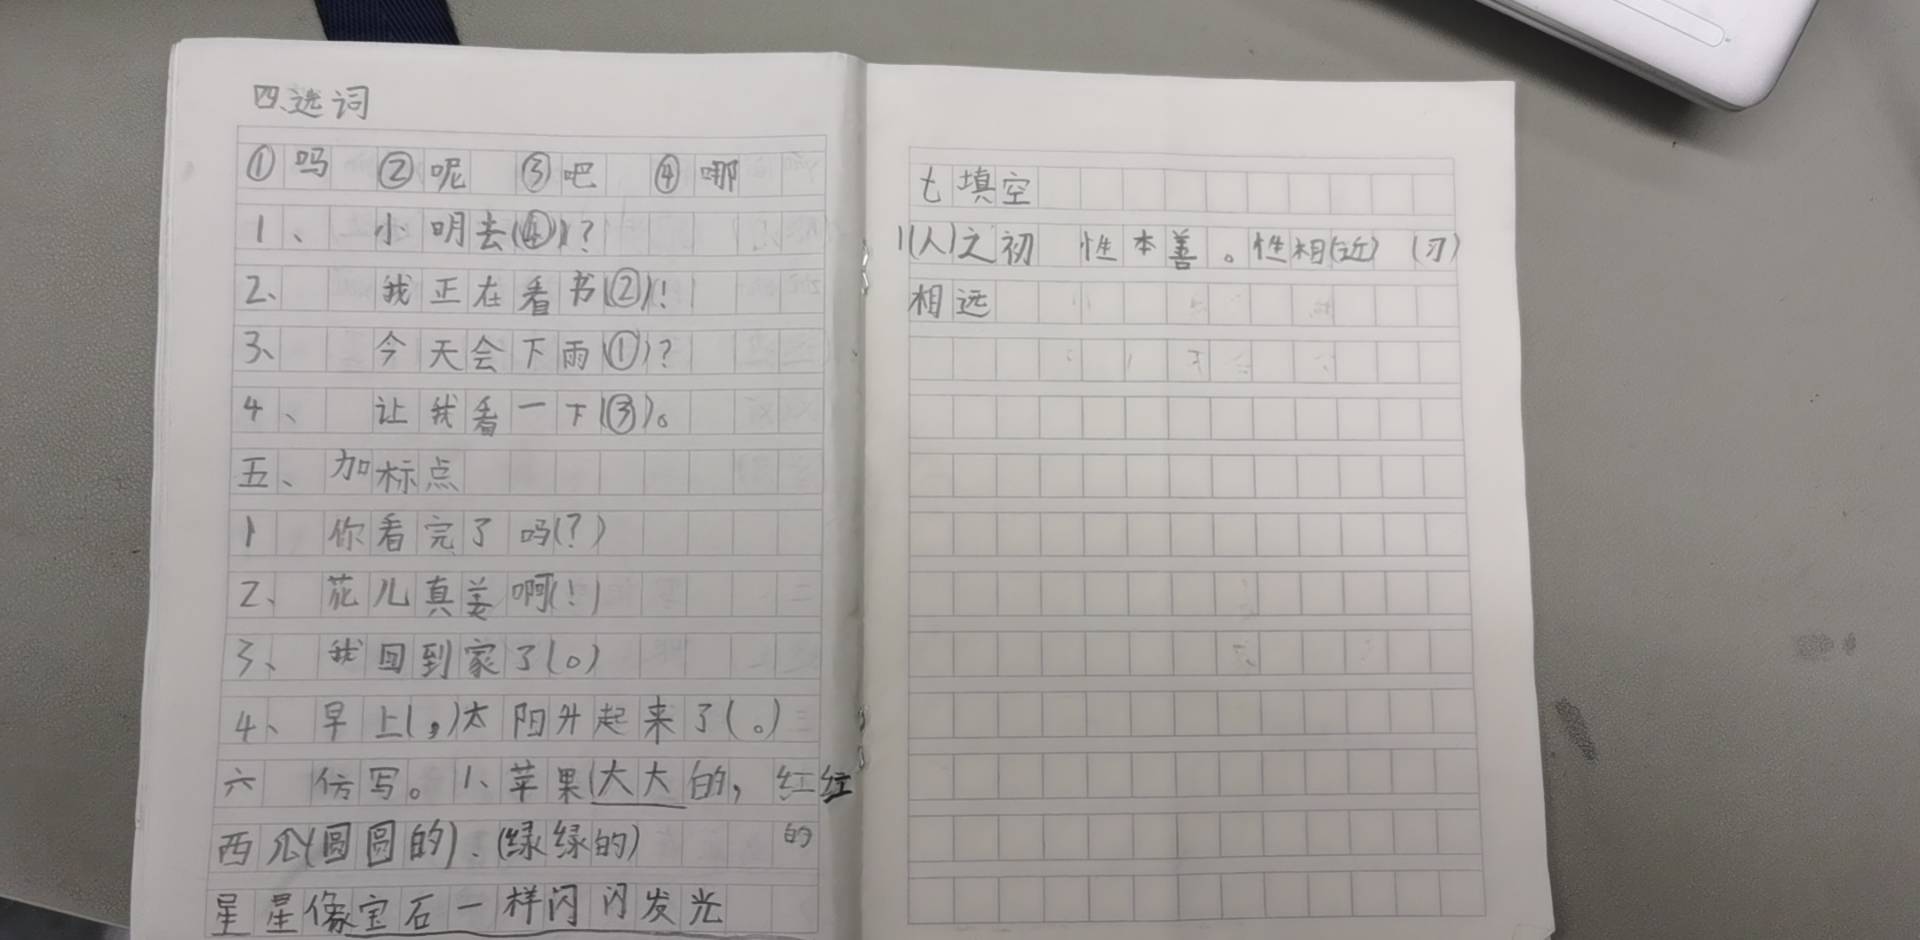 四、选词
①吗 ②呢 ③吧 ④哪
1、 小明去(④)?
2、 我正在看书(②)!
3、 今天会下雨(①)?
4、 让我看一下(③)。
五、加标点
1 你看完了吗(?)
2、 花儿真美啊(!)
3、 我回到家了(。)
4、早上(,)太阳升起来了(。)
六 仿写。1、苹果(大大的,红红
的
西瓜(圆圆的)、(绿绿的)
星星像宝石一样闪闪发光
七填空
1(人)之初 性本善。性相(近) (习)
相远